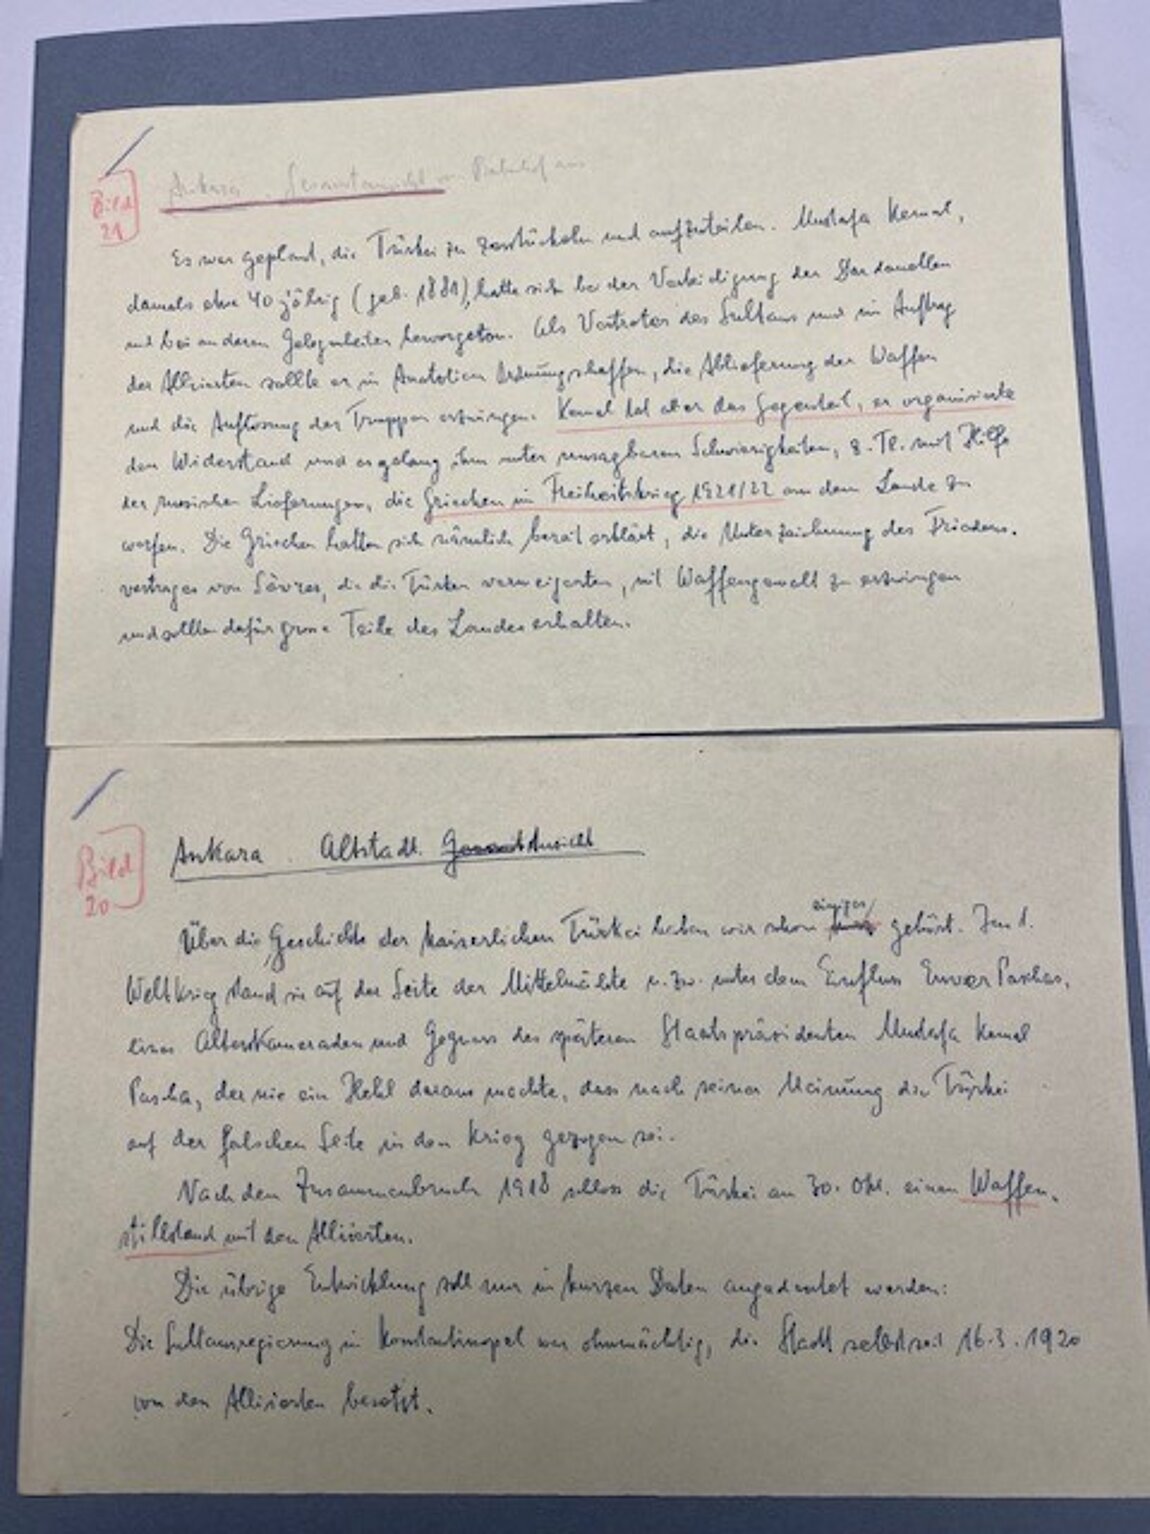 Bild
21
Ankara. Gesamtansicht vom Bahnhof aus
Es war geplant, die Türkei zu zerstückeln und aufzuteilen. Mustafa Kemal,
damals etwa 40 jährig (geb. 1881), hatte sich bei der Verteidigung der Dardanellen
und bei anderen Gelegenheiten hervorgetan. Als Vertreter des Sultans und im Auftrag
der Alliierten sollte er in Anatolien Ordnung schaffen, die Ablieferung der Waffen
und die Auflösung der Truppen erzwingen. Kemal tat aber das Gegenteil, er organisierte
den Widerstand und es gelang ihm unter unsagbaren Schwierigkeiten, z. Tl. mit Hilfe
der russischen Lieferungen, die Griechen im Freiheitskrieg 1921/22 aus dem Lande zu
werfen. Die Griechen hatten sich nämlich bereit erklärt, die Unterzeichnung des Friedens-
vertrages von Sèvres, die die Türken verweigerten, mit Waffengewalt zu erzwingen
und sollten dafür grosse Teile des Landes erhalten.
Bild
20
Ankara. Altstadt. Gesamtansicht
Über die Geschichte der kaiserlichen Türkei haben wir schon einiges gehört. Im 1.
Weltkrieg stand sie auf der Seite der Mittelmächte u. zw. unter dem Einfluss Enver Paschas,
eines Alterskameraden und Gegners des späteren Staatspräsidenten Mustafa Kemal
Pascha, der nie ein Hehl daraus machte, dass nach seiner Meinung die Türkei
auf der falschen Seite in den Krieg gezogen sei.
Nach dem Zusammenbruch 1918 schloss die Türkei am 30. Okt. einen Waffen-
stillstand mit den Alliierten.
Die übrige Entwicklung soll nur in kurzen Daten angedeutet werden:
Die Sultansregierung in Konstantinopel war ohnmächtig, die Stadt selbst seit 16.3.1920
von den Alliierten besetzt.